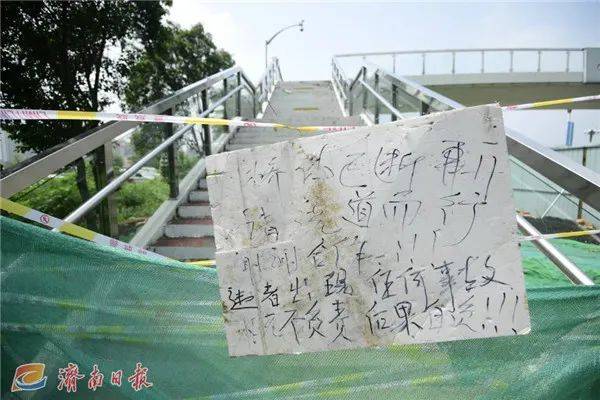 桥 已断开!!
请绕道而行
谢谢合作!!!
违者出现任何事故
不负责 后果自负!!!
济南日报